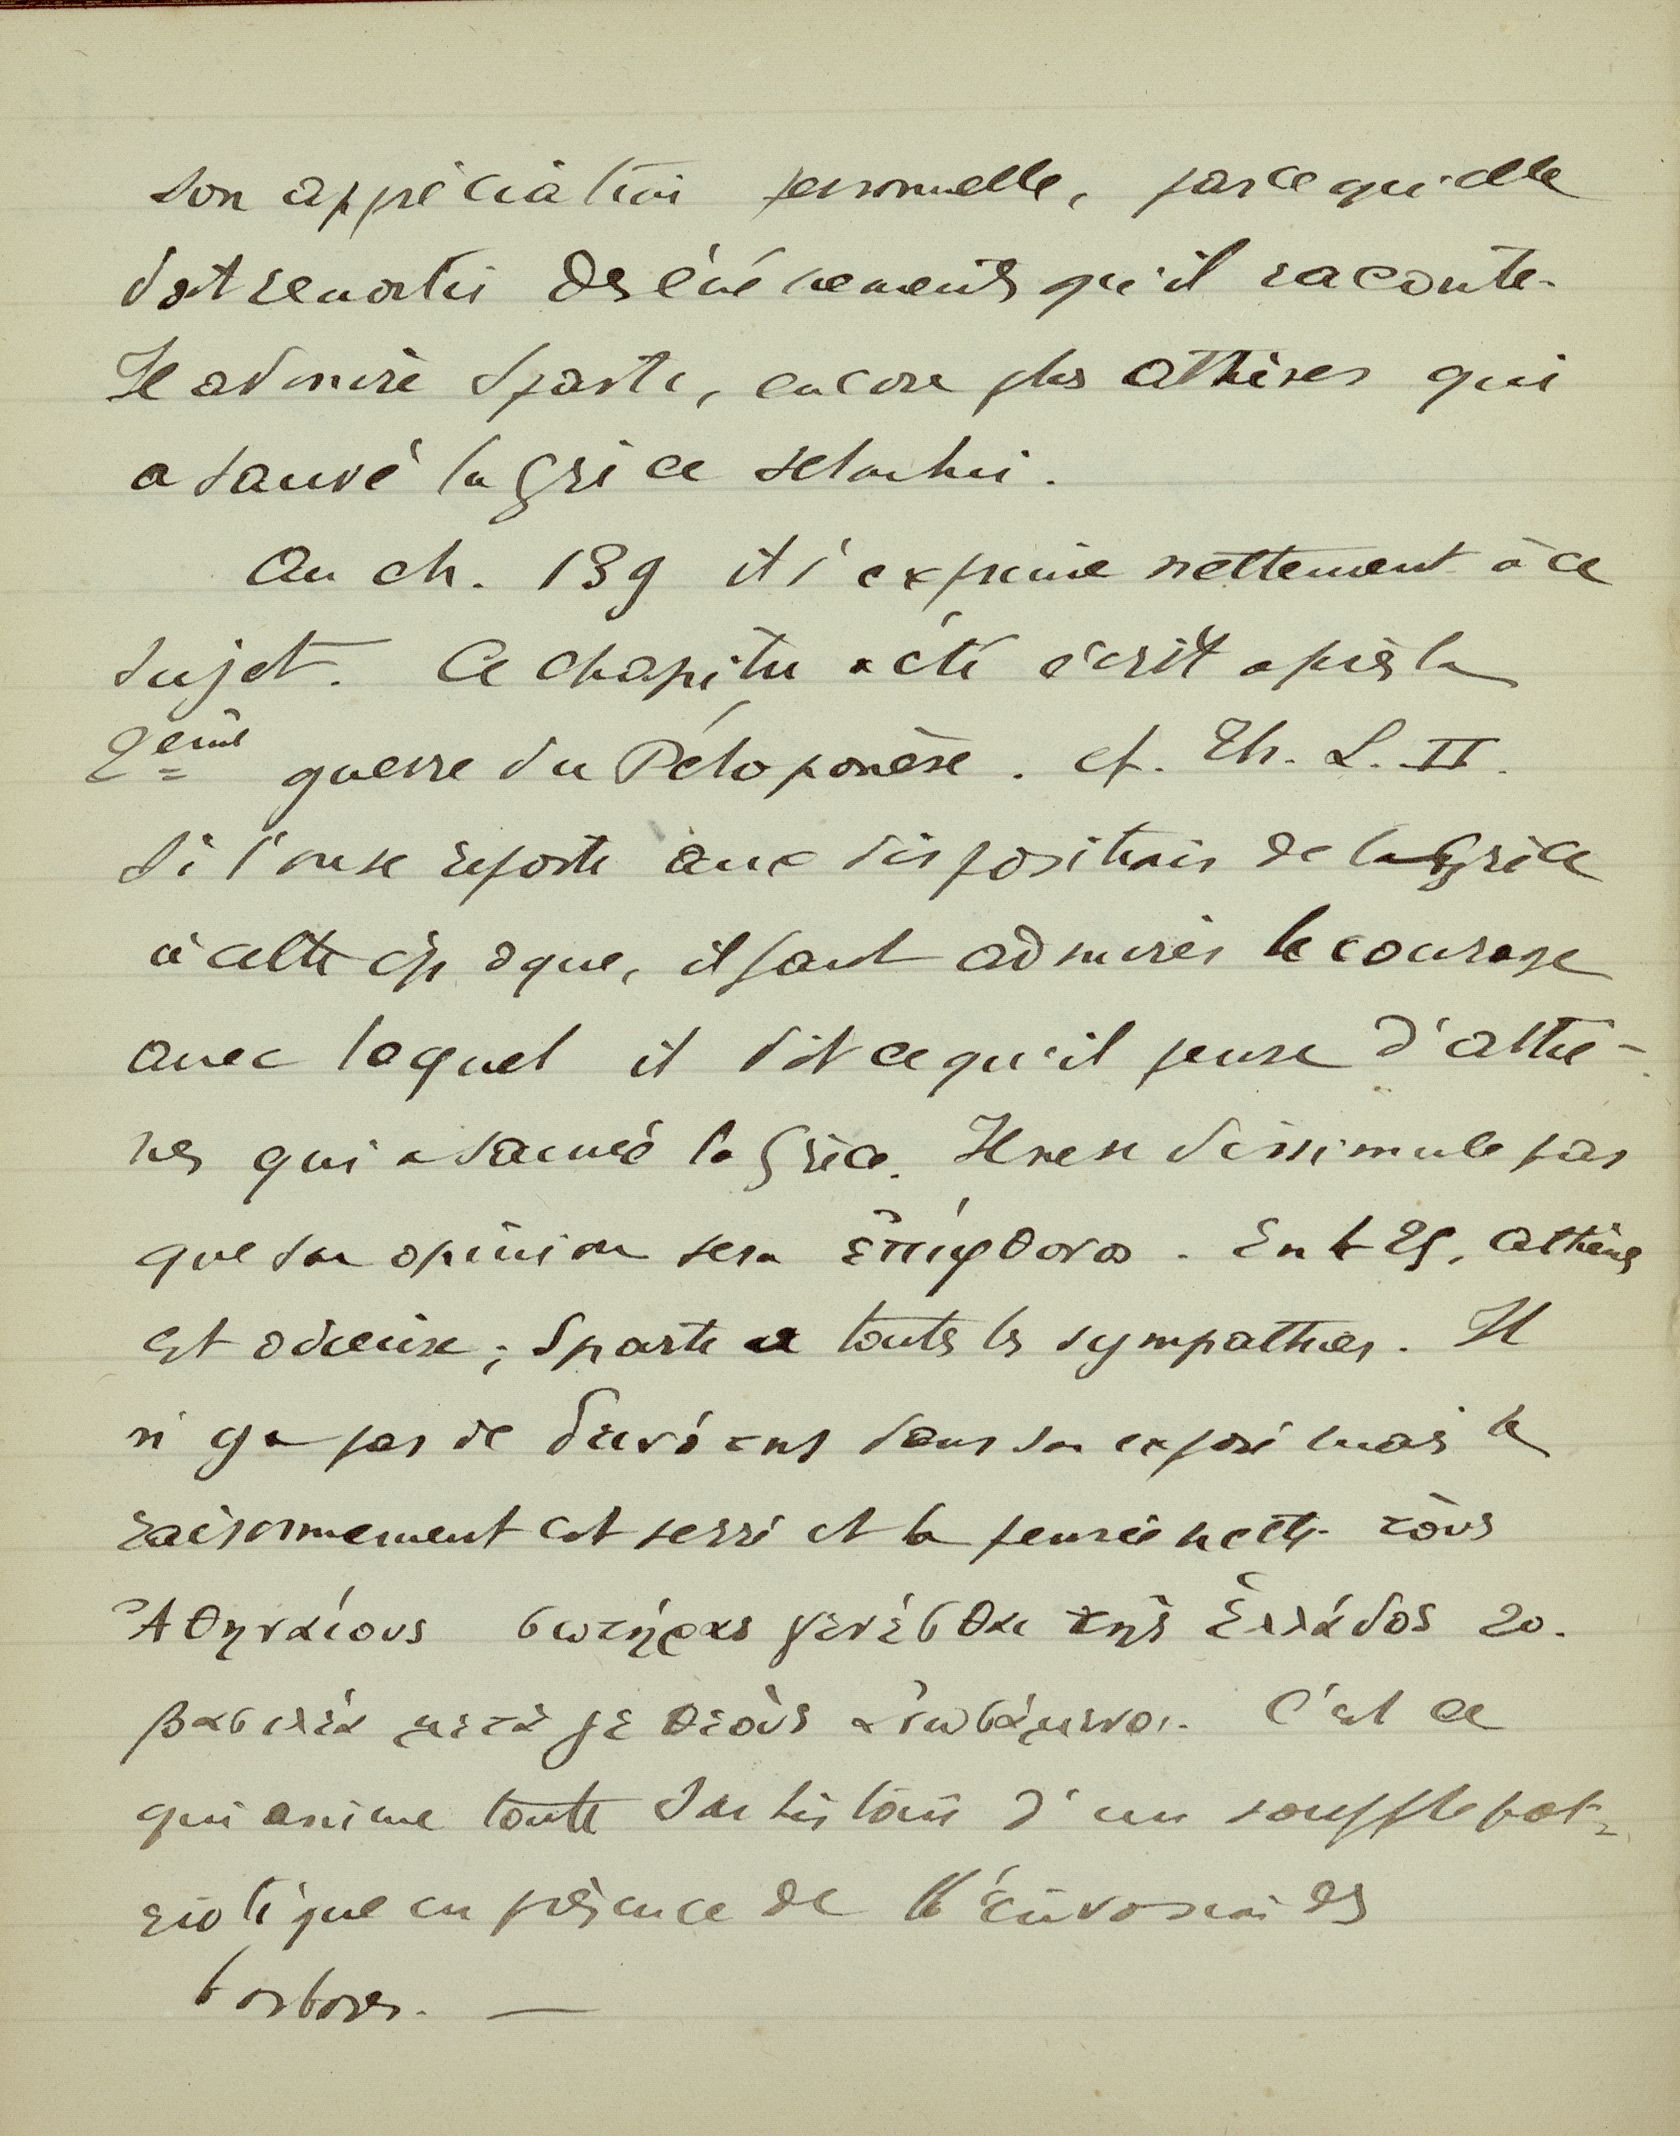 son appréciation personnelle, parce qu'elle
doit ressortir des événements qu'il raconte.
Il admire Sparte, encore plus Athènes qui
a sauvé la Grèce selon lui.
Au ch. 139 il s'exprime nettement à ce
sujet. Ce chapitre a été écrit après la
2ème guerre du Péloponèse. cf. Th. L. II.
Si l'on se reporte aux dispositions de la Grèce
à cette époque, il faut admirer le courage
avec lequel il dit ce qu'il pense d'Athè-
nes qui a sauvé la Grèce. Il ne se dissimule pas
que son opinion sera ἐπίφθονοσ. En 425, Athènes
est odieuse; Sparte a toutes les sympathies. Il
n'y a pas de δεινότης dans son exposé mais le
raisonnement est serré et la pensée nette. τὸυς
Ἀθηναίους σωτήρας γενέσθαι τῆς Ἑλλάδος
βασιλέα μετά γε θεοὺς ἀνωσάμενοι. C'est ce
qui anime toute son histoire d'un souffle pat-
riotique en présence de l'invasion des
barbares. —